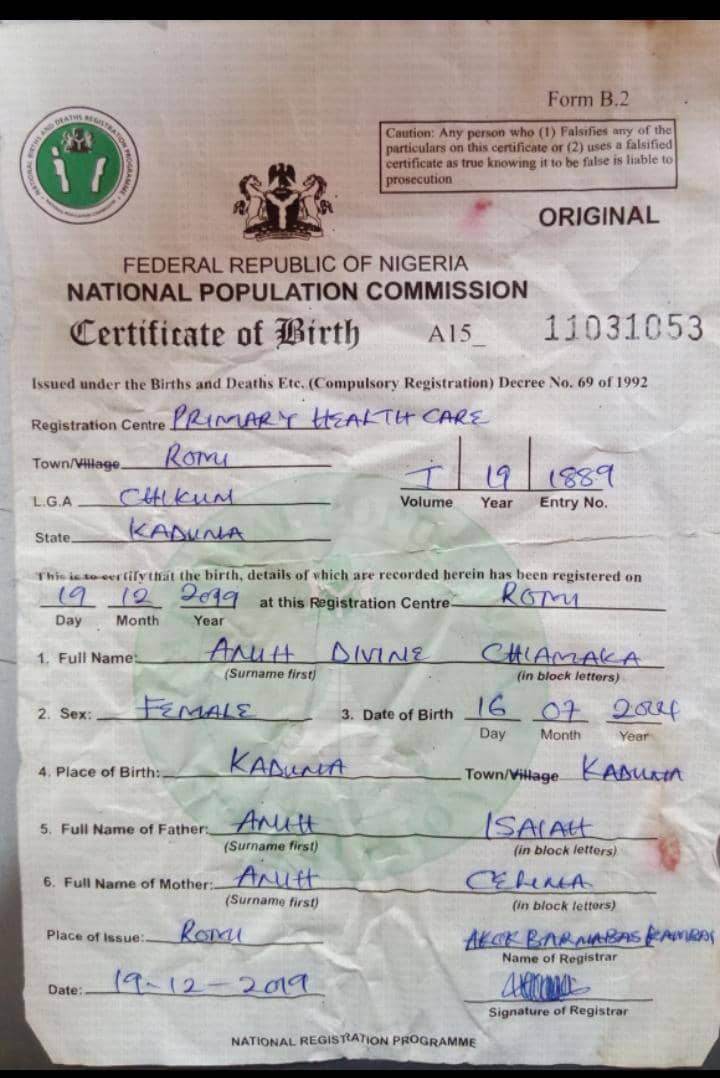 Form B.2
NATIONAL BIRTHS AND DEATHS REGISTRATION PROGRAMME
Caution: Any person who (1) Falsifies any of the
particulars on this certificate or (2) uses a falsified
certificate as true knowing it to be false is liable to
prosecution
ORIGINAL
FEDERAL REPUBLIC OF NIGERIA
NATIONAL POPULATION COMMISSION
Certificate of Birth A15_ 11031053
Issued under the Births and Deaths Etc. (Compulsory Registration) Decree No. 69 of 1992
Registration Centre PRIMARY HEALTH CARE
Town/Village ROMI
L.G.A CHIKUM
State KADUNA
I 19 1889
Volume Year Entry No.
This is to certify that the birth, details of which are recorded herein has been registered on
19 12 2019 at this Registration Centre ROMI
Day Month Year
1. Full Name: ANUH DIVINE CHIAMAKA
(Surname first) (in block letters)
2. Sex: FEMALE 3. Date of Birth 16 07
Day Month Year
4. Place of Birth: KADUNA Town/Village KADUNA
5. Full Name of Father: ANUH ISAIAH
(Surname first) (in block letters)
6. Full Name of Mother: ANUH
(Surname first) (in block letters)
Place of Issue: ROMI
BARNABAS
Name of Registrar
Date: 19-12-2019
Signature of Registrar
NATIONAL REGISTRATION PROGRAMME